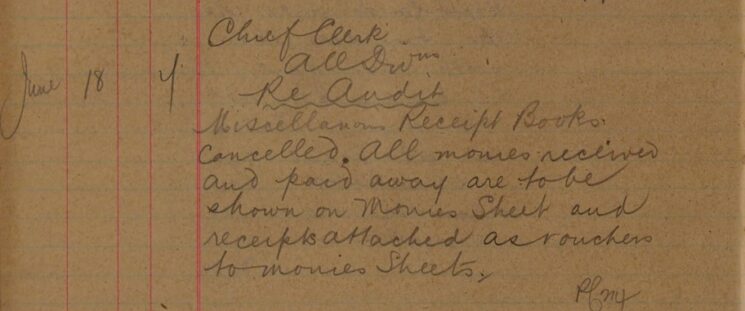 Chief Clerk
All Divns
June 18 Re Audit
Miscellanous Receipt Books
Cancelled. All monies received
and paid away are to be
shown on Monies Sheet and
receipts attached as vouchers
to monies Sheets.